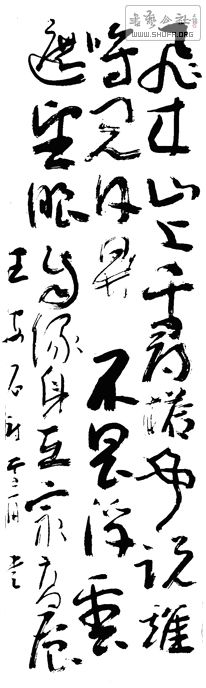 書藝公社
WWW.SHUFA.ORG
飛來山上千尋塔聞說雞
鳴見日昇不畏浮雲
遮望眼自緣身在最高層
王安石詩